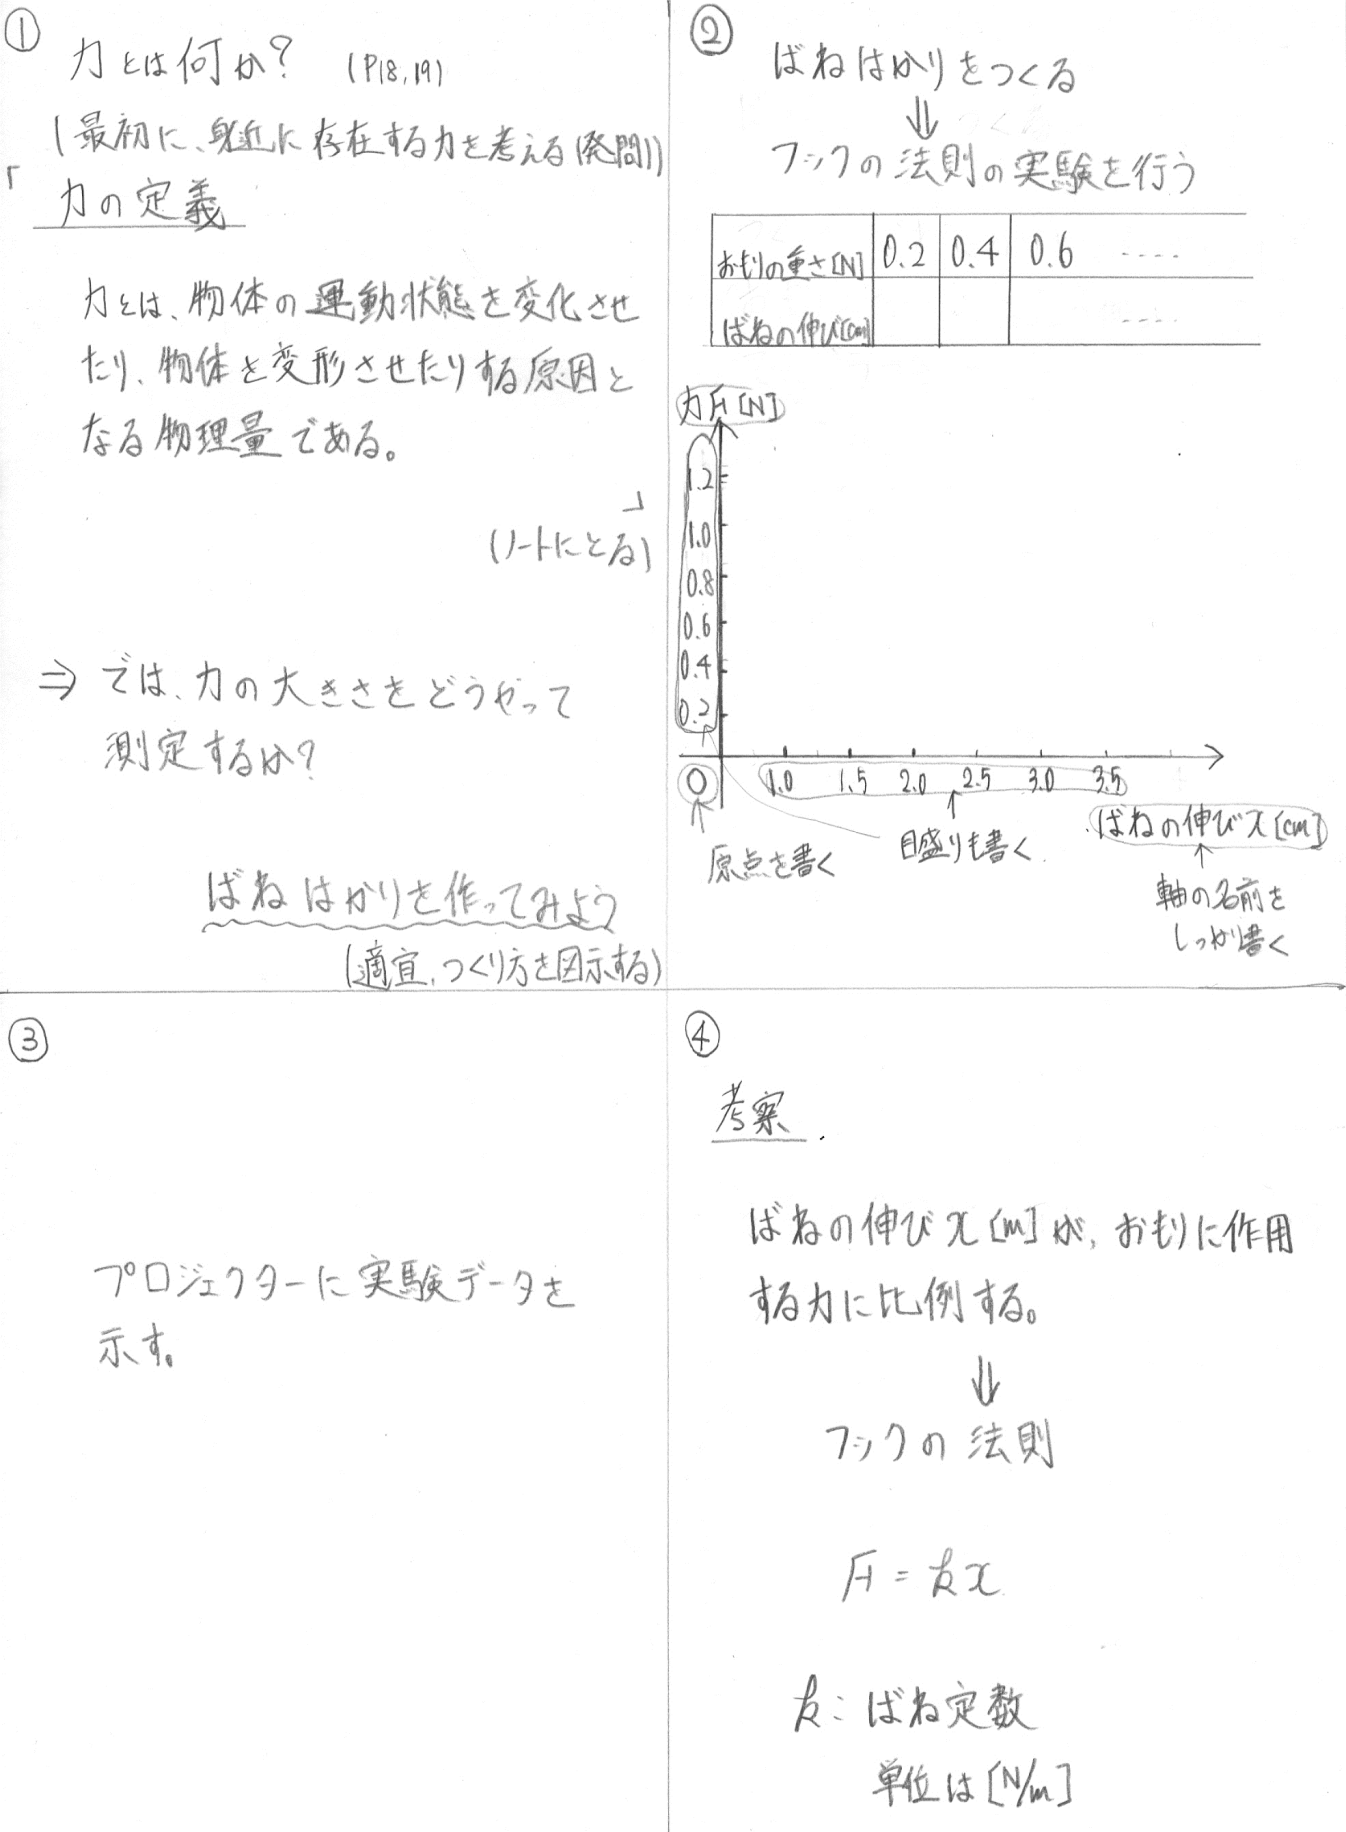 ①
力とは何か? (P18,19)
(最初に、身近に存在する力を考える(発問))
「
力の定義
力とは、物体の運動状態を変化させ
たり、物体を変形させたりする原因と
なる物理量である。
」
(ノートにとる)
⇒ では、力の大きさをどうやって
測定するか?
ばねはかりを作ってみよう
(適宜、つくり方を図示する)
②
ばねはかりをつくる
⇓
フックの法則の実験を行う
おもりの重さ[N] 0.2 0.4 0.6 ----
ばねの伸び[cm] ----
力F[N]
1.2
1.0
0.8
0.6
0.4
0.2
0 1.0 1.5 2.0 2.5 3.0 3.5
ばねの伸びx[cm]
原点を書く
目盛りも書く
軸の名前を
しっかり書く
③
プロジェクターに実験データを
示す。
④
考察
ばねの伸びx[m]が、おもりに作用
する力に比例する。
⇓
フックの法則
F=kx
k:ばね定数
単位は[N/m]